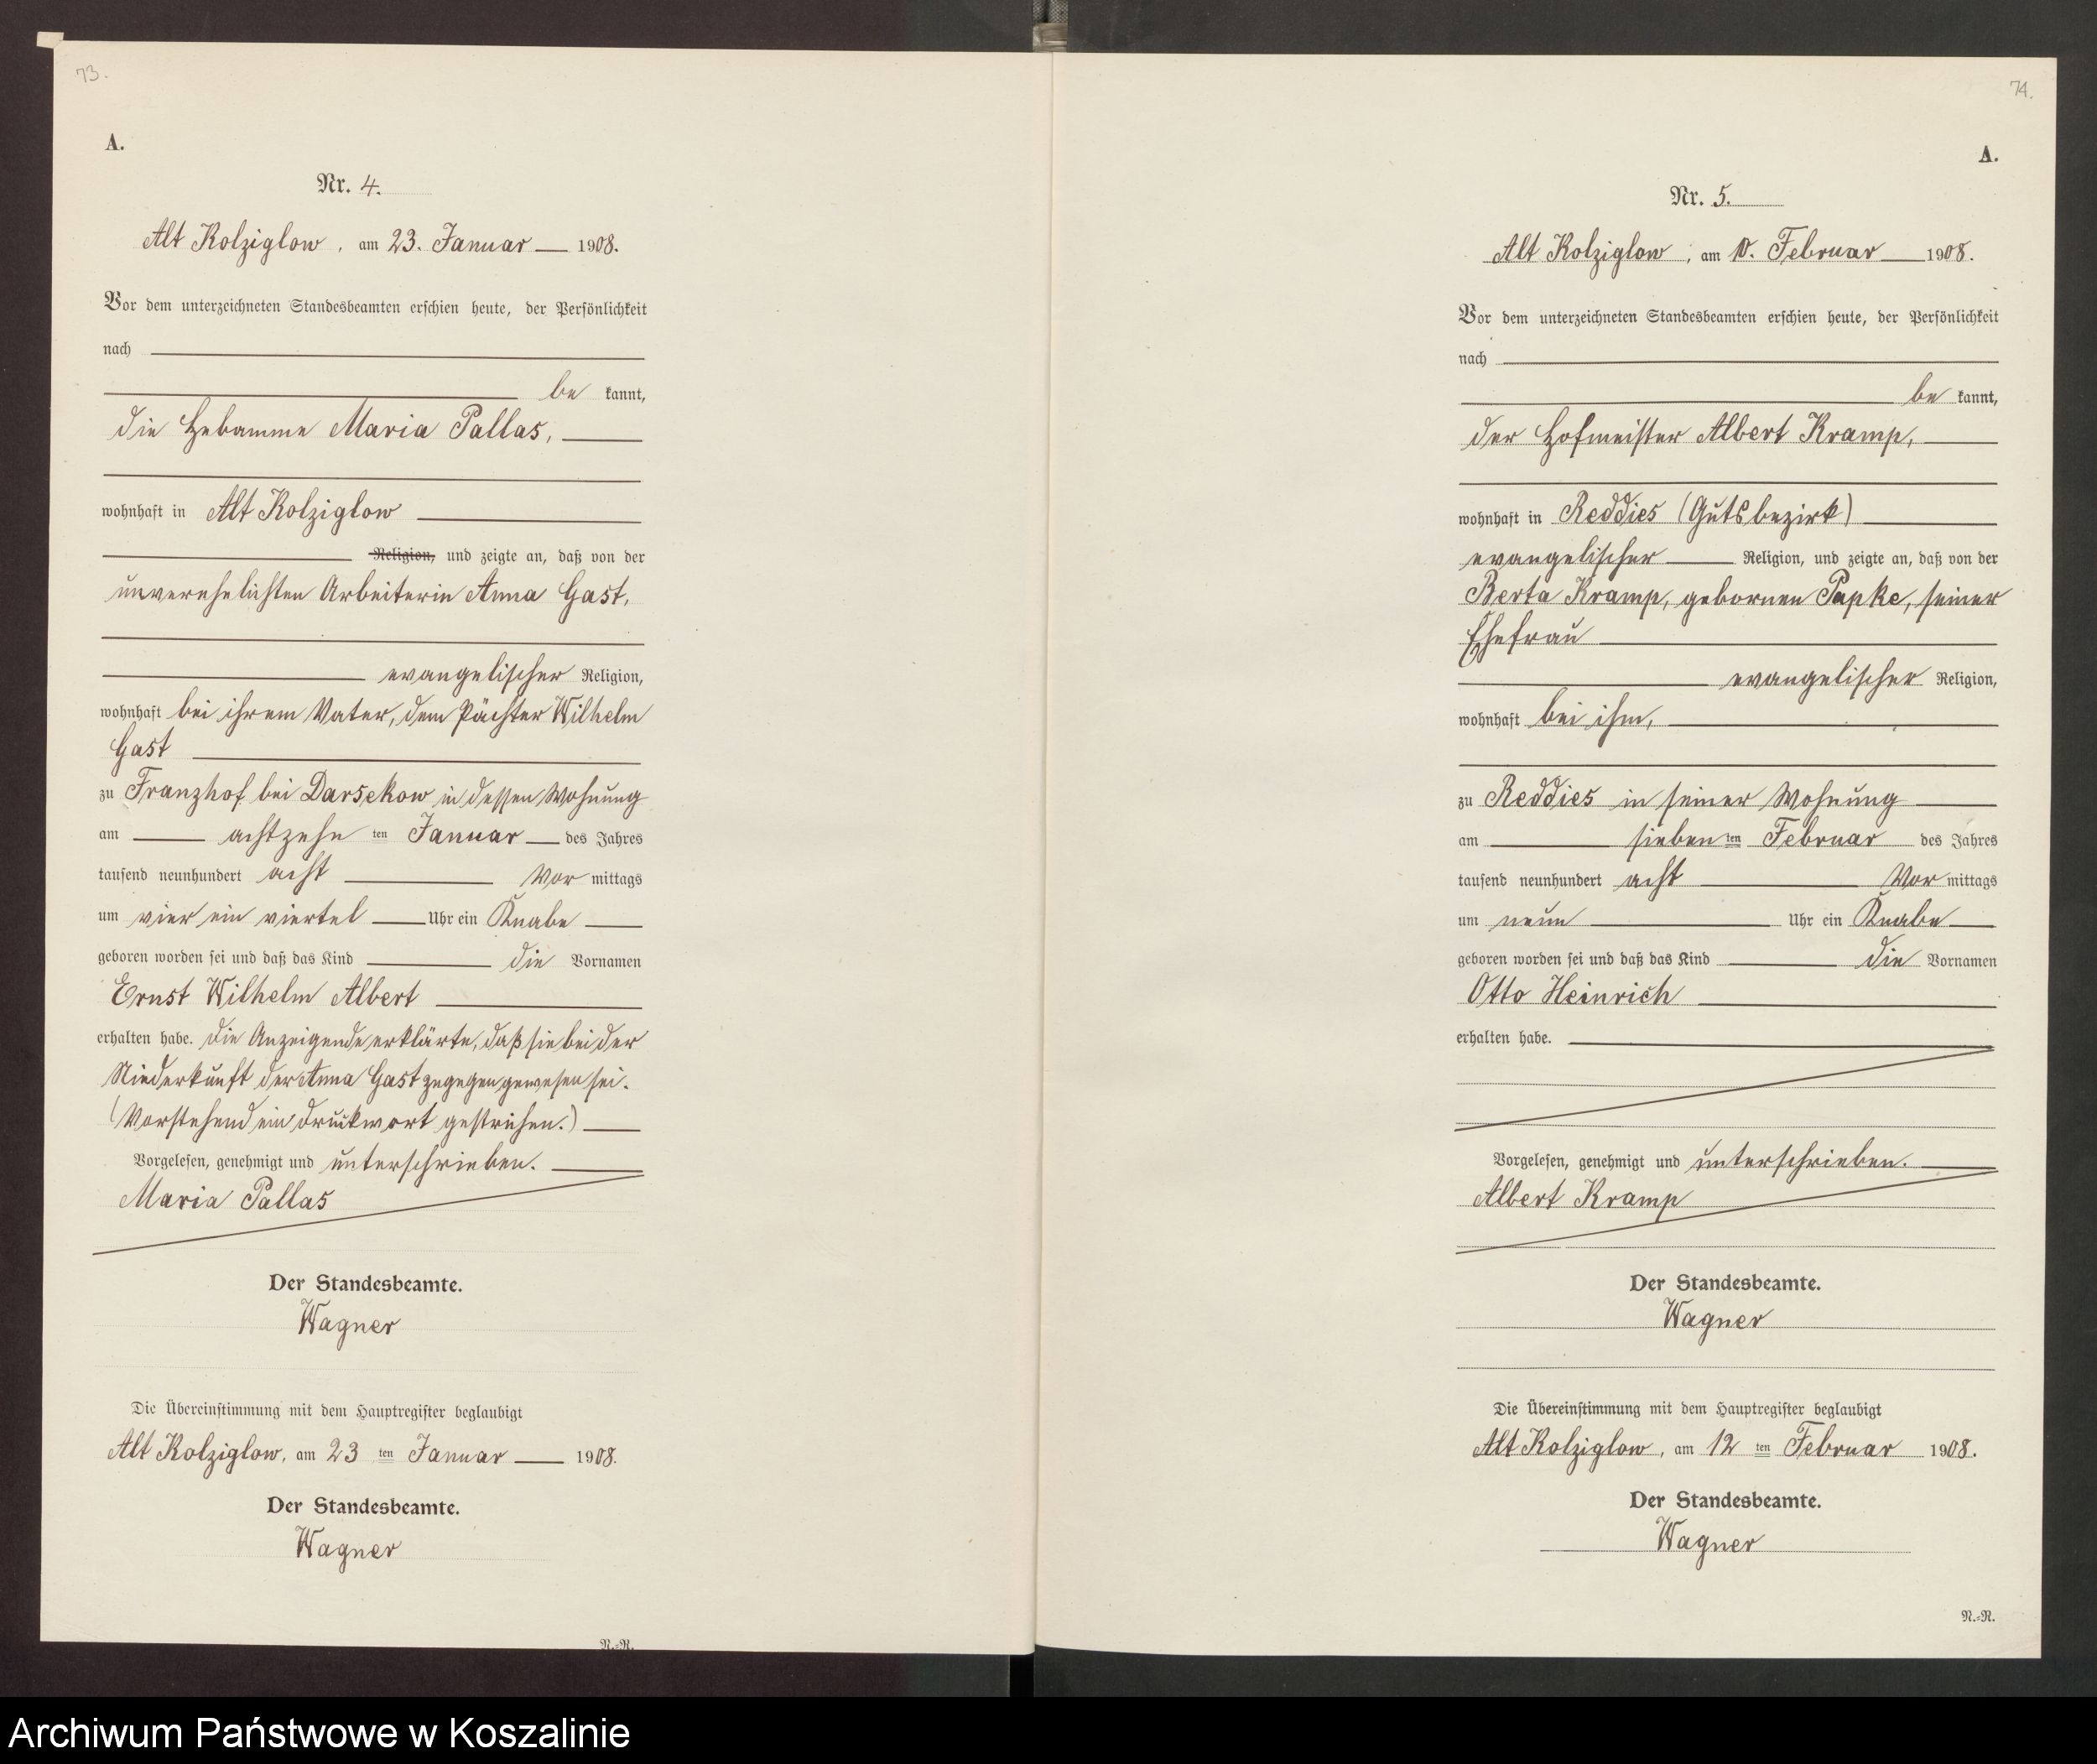 73.
A.
Nr. 4.
Alt Kolziglow, am 23. Januar 1908.
Vor dem unterzeichneten Standesbeamten erschien heute, der Persönlichkeit
nach
be kannt,
die Hebamme Maria Pallas,
wohnhaft in Alt Kolziglow
Religion, und zeigte an, daß von der
unverehelichten Arbeiterin Anna Gast,
evangelischer Religion,
wohnhaft bei ihrem Vater, dem Pächter Wilhelm
Gast
zu Franzhof bei Darsekow in dessen Wohnung
am achtzehn ten Januar des Jahres
tausend neunhundert acht Vor mittags
um vier ein viertel Uhr ein Knabe
geboren worden sei und daß das Kind die Vornamen
Ernst Wilhelm Albert
erhalten habe. Die Anzeigende erklärte, daß sie bei der
Niederkunft der Anna Gast zugegen gewesen sei.
(Vorstehend ein Druckwort gestrichen.)
Vorgelesen, genehmigt und unterschrieben.
Maria Pallas
Der Standesbeamte.
Wagner
Die Übereinstimmung mit dem Hauptregister beglaubigt
Alt Kolziglow, am 23 ten Januar 1908.
Der Standesbeamte.
Wagner
N.-R.
74.
A.
Nr. 5.
Alt Kolziglow, am 10. Februar 1908.
Vor dem unterzeichneten Standesbeamten erschien heute, der Persönlichkeit
nach
be kannt,
der Hofmeister Albert Kramp,
wohnhaft in Reddies (Gutsbezirk)
evangelischer Religion, und zeigte an, daß von der
Berta Kramp, gebornen Papke, seiner
Ehefrau
evangelischer Religion,
wohnhaft bei ihm,
zu Reddies in seiner Wohnung
am sieben ten Februar des Jahres
tausend neunhundert acht Vor mittags
um neun Uhr ein Knabe
geboren worden sei und daß das Kind die Vornamen
Otto Heinrich
erhalten habe.
Vorgelesen, genehmigt und unterschrieben.
Albert Kramp
Der Standesbeamte.
Wagner
Die Übereinstimmung mit dem Hauptregister beglaubigt
Alt Kolziglow, am 12 ten Februar 1908.
Der Standesbeamte.
Wagner
N.-R.
Archiwum Państwowe w Koszalinie